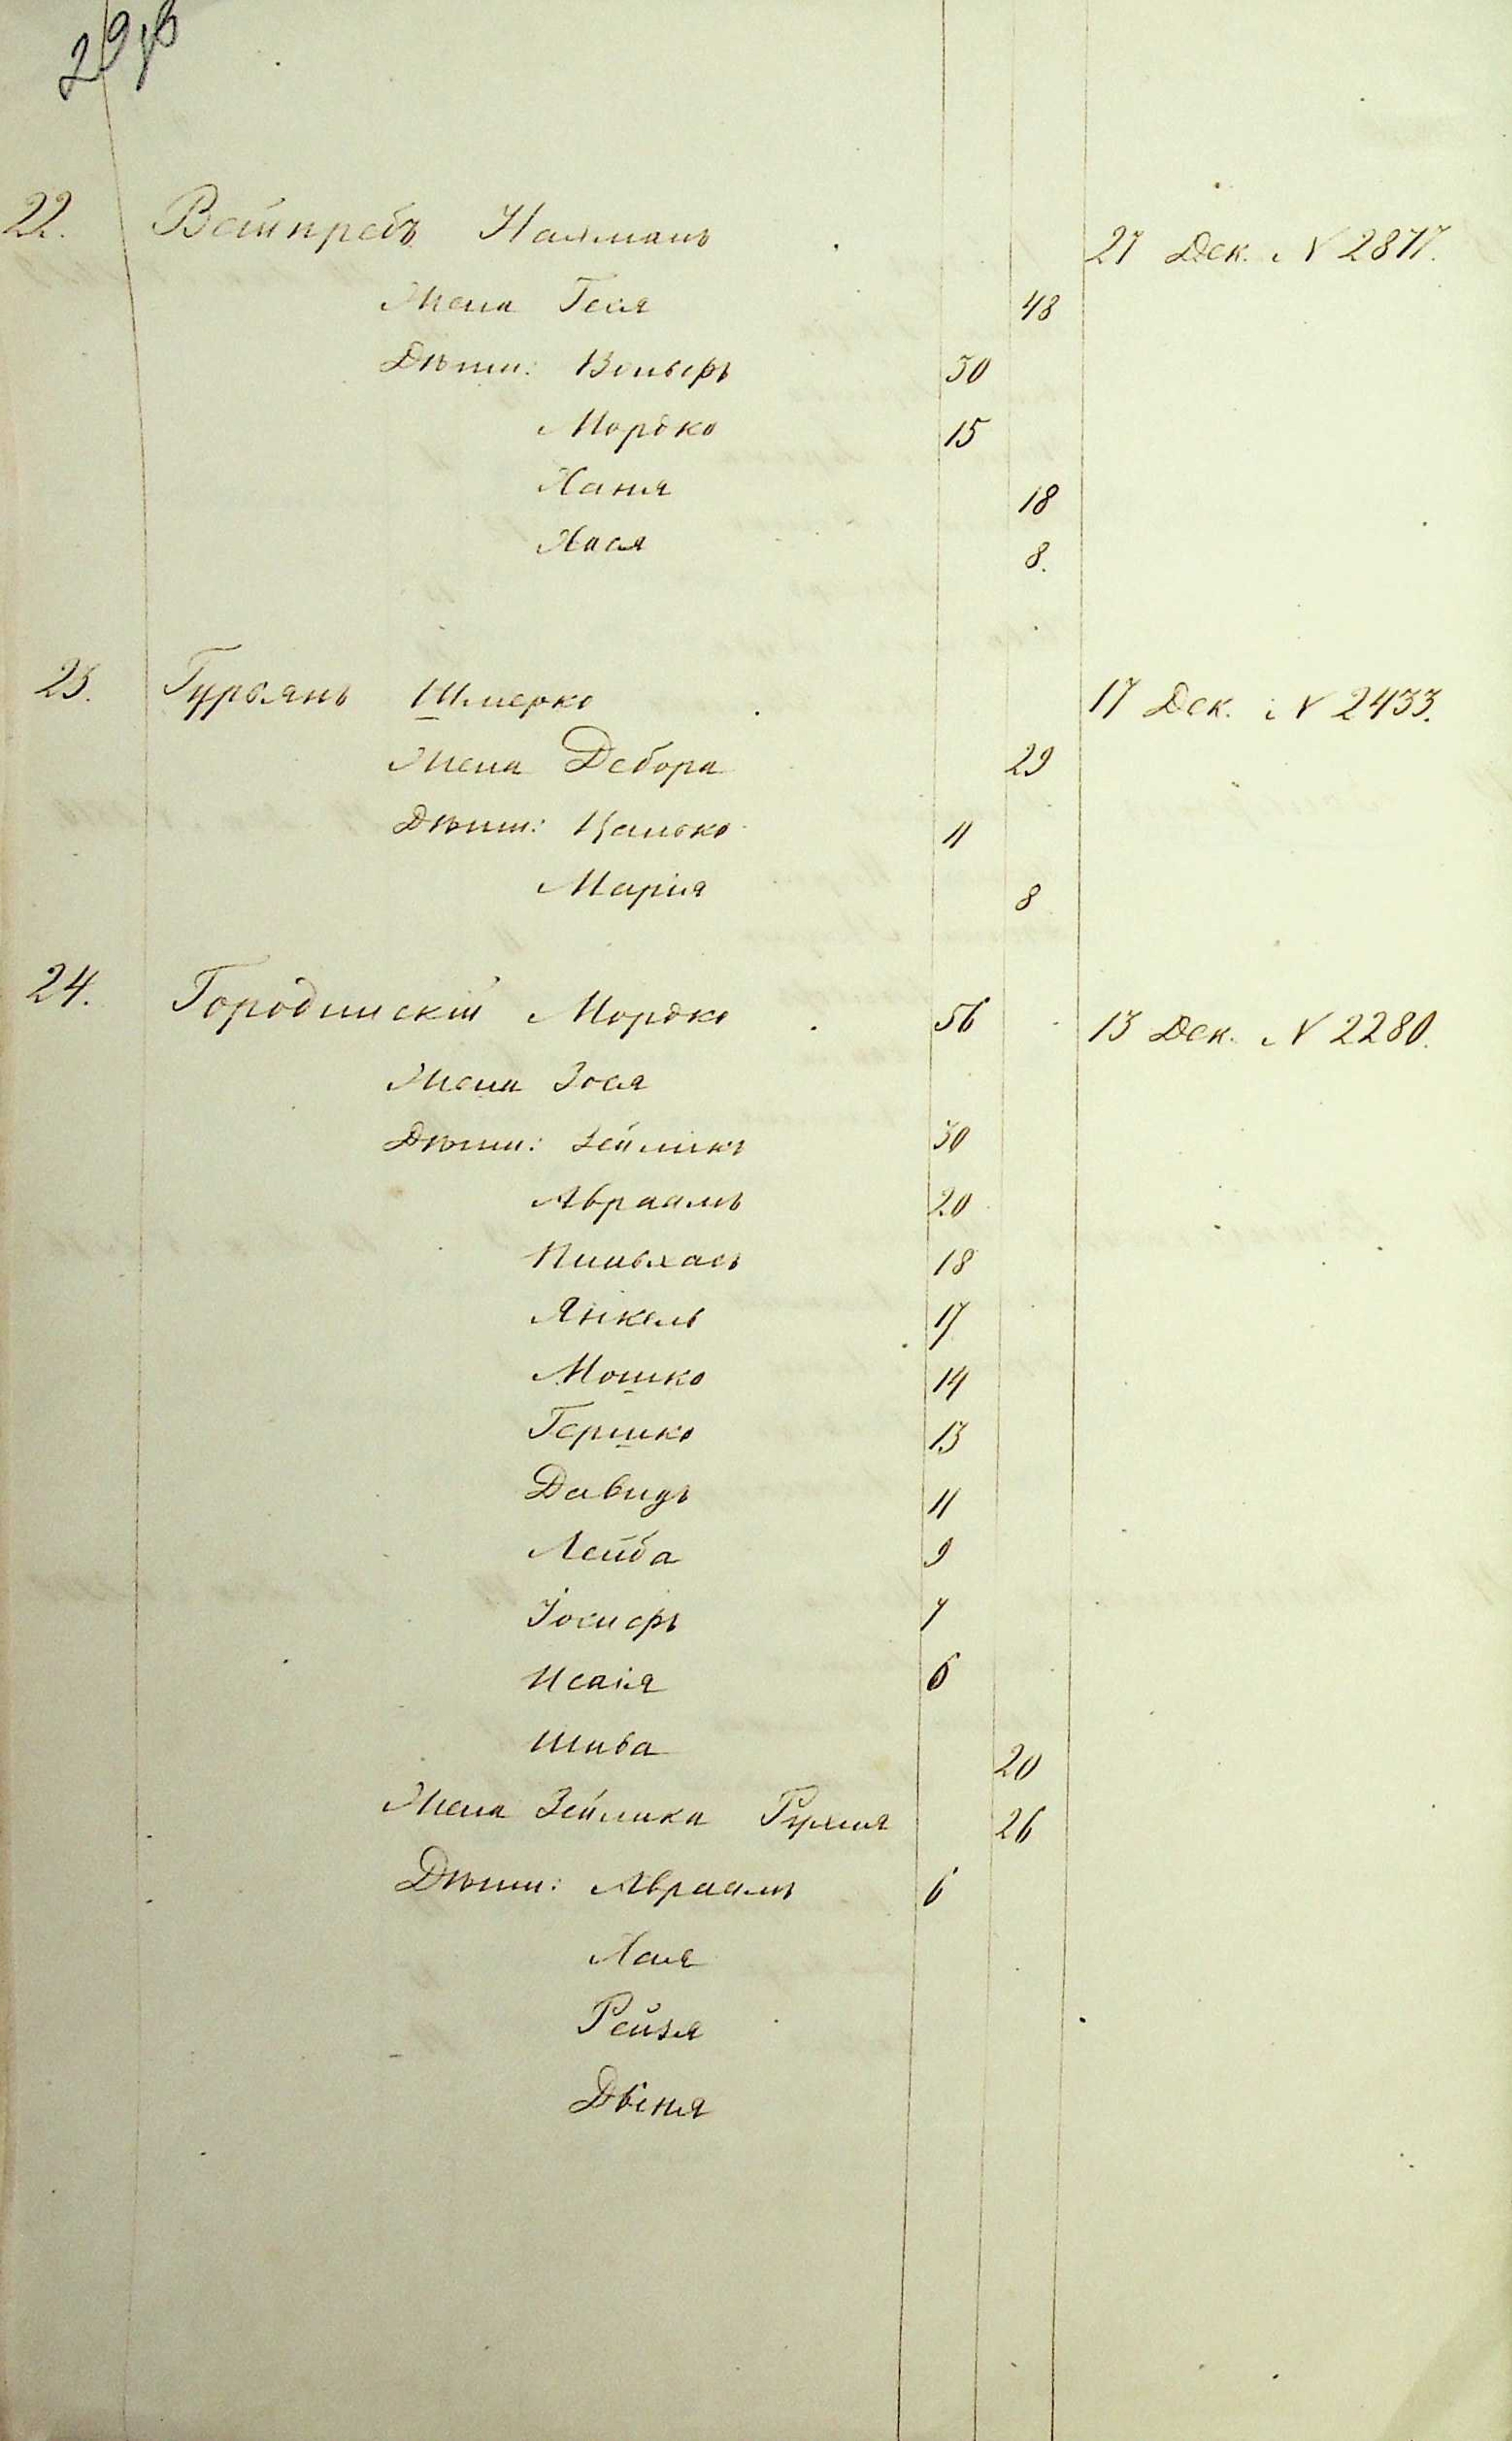 22. Вейнребъ Нахманъ 27 Дек. N 2877.
Жена Геся 48
Дѣти: Вольфъ 30
Мордко 15
Ханя 18
Хася 8.
23. Гурвянъ Шмерко 17 Дек. N 2433.
Жена Дебора 29
Дѣти: Цалько 11
Марія 8
24. Городинскій Мордко 56 13 Дек. N 2280.
Жена Зося
Дѣти: Зейликъ 30
Авраамъ 20
Пиньхасъ 18
Янкель 17
Мошко 14
Гершко 13
Давидъ 11
Лейба 9
Іосифъ 7
Исаія 6
Шива 20
Жена Зейлика 26
Дѣти: Авраамъ 6
Хая
Рейзя
Двеня